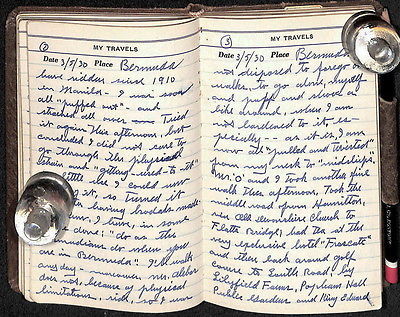 2
MY TRAVELS
Date 3/5/30 Place Bermuda
have ridden since 1910
in Manila - I was soon
all "puffed out" - and
all over Tried
it again this afternoon, but
concluded I did not care to
go through the physical
strain and "getting used to it"
little else I could now
it, so turned it
having
have, in some
done: "do as the
Bermudians do when you
are in Bermuda". I'll walk
any day - moreover, Mrs.
does not, because of physical
limitations, ride, so I was
3
MY TRAVELS
Date 3/5/30 Place Bermuda
not disposed to forego our
walks, to go alone, myself
and puff and
bike around, when I am
not hardened to it, es-
pecially - as it is, I am
now all "pulled and twisted"
from my neck to "midships.
Mrs. O and I took another fine
walk this afternoon, Took the
middle road from Hamilton,
via old Devonshire Church to
Flatts Bridge; had tea at the
very exclusive hotel "Frascati"
and then back around golf
course to Smith Road, by
Lilyfield Farms, Hall
Gardens and King Edward